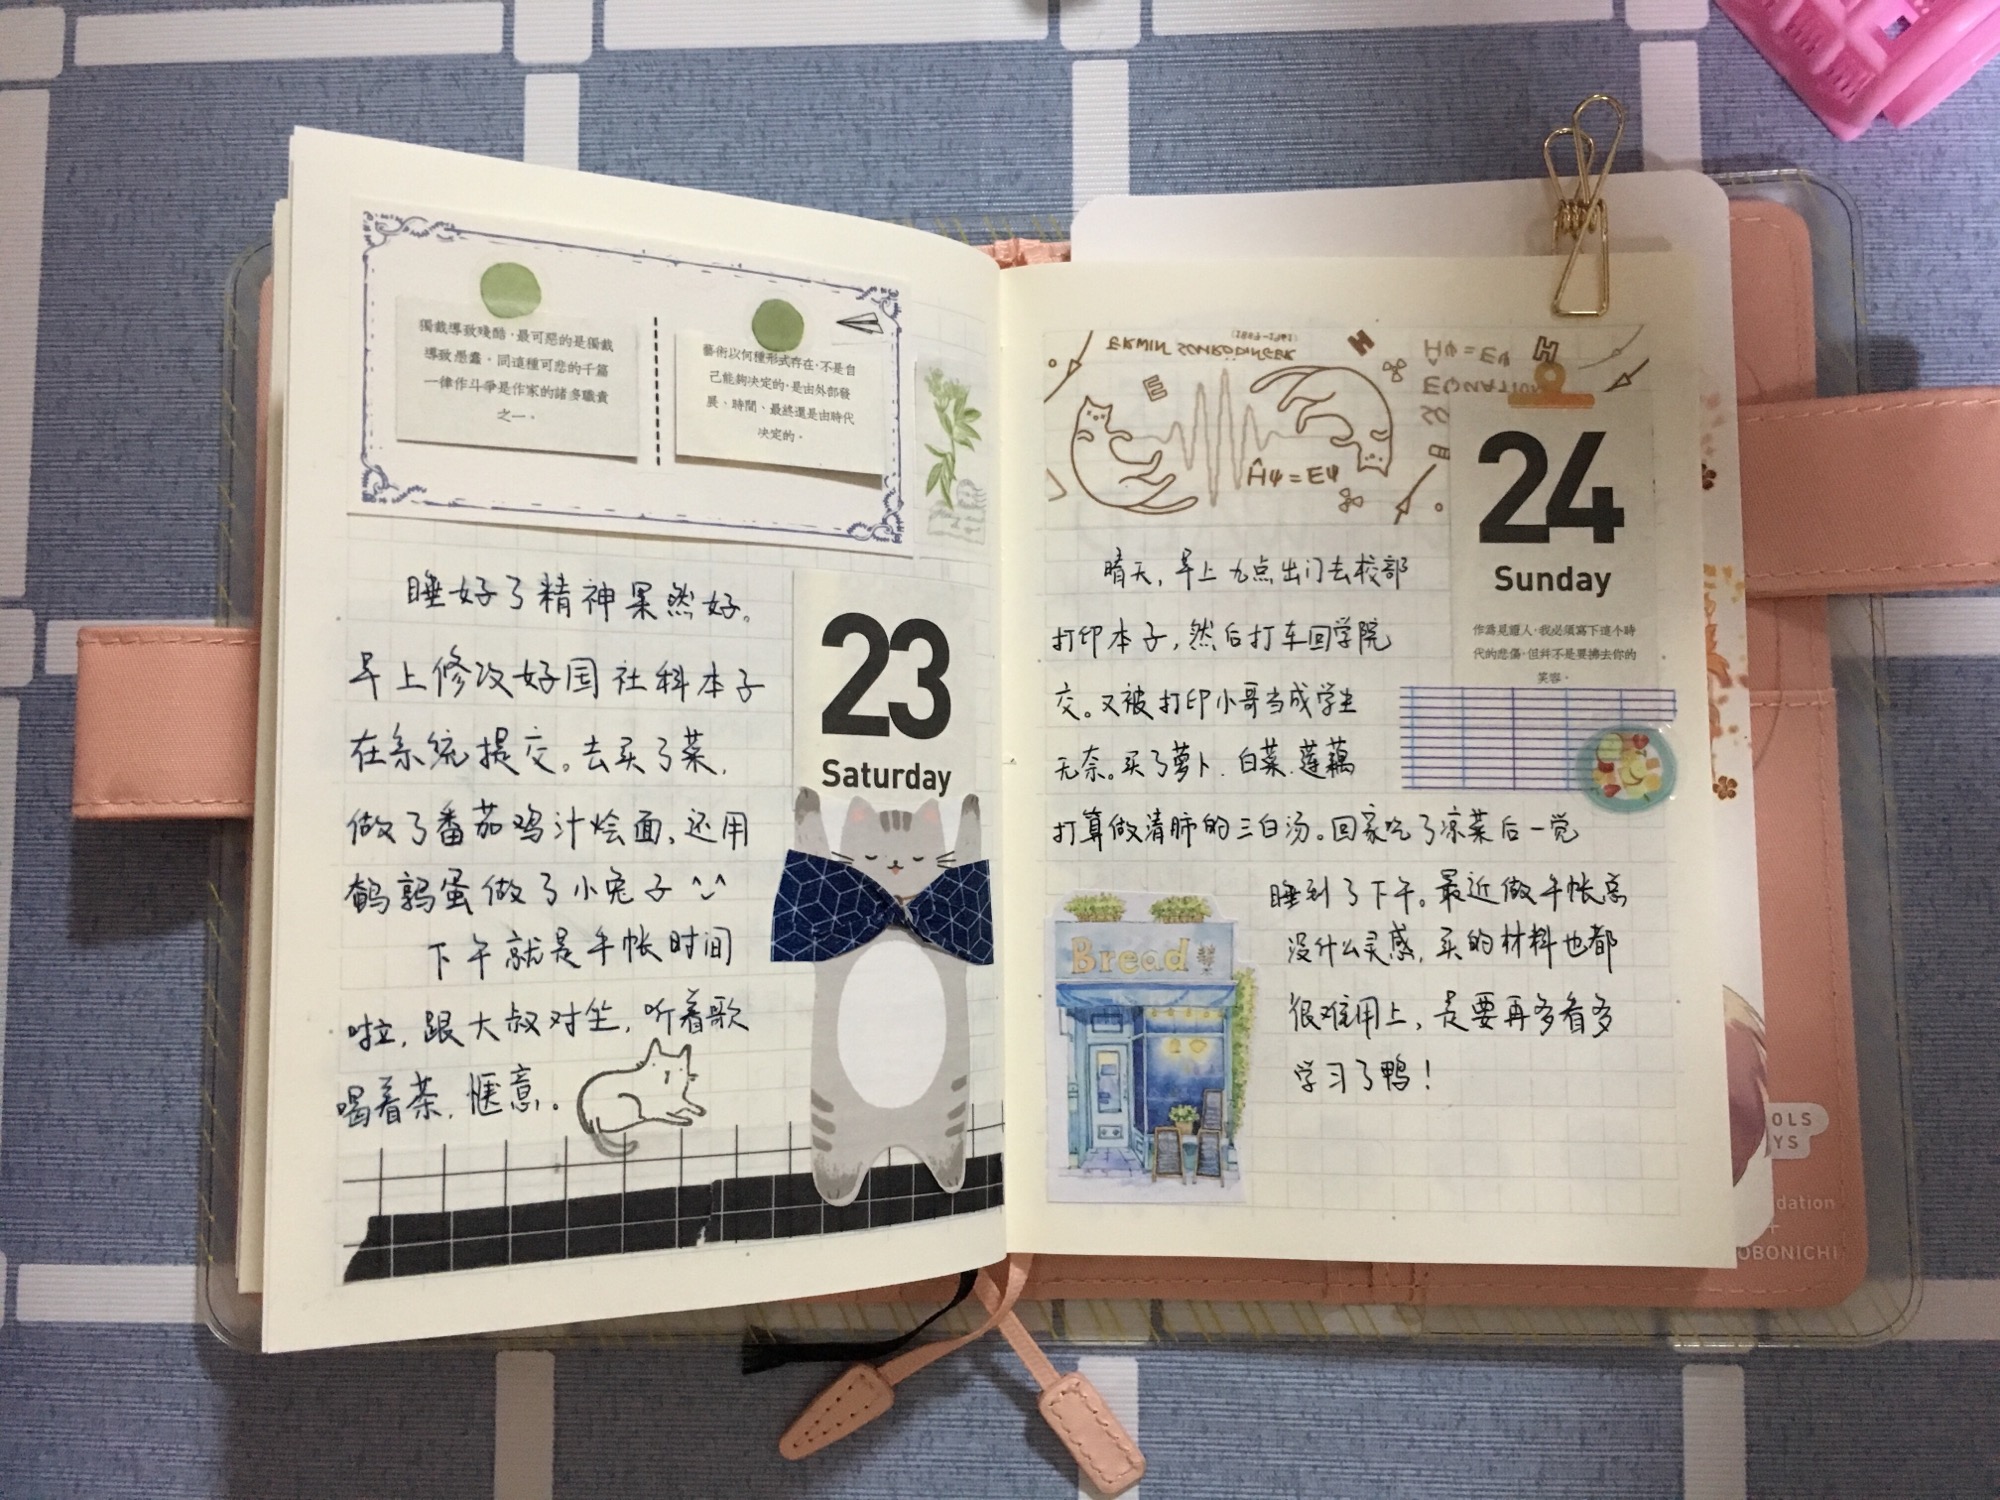 獨裁導致殘酷，最可惡的是獨裁
導致愚蠢。同這種可悲的千篇
一律作斗爭是作家的諸多職責
之一。
藝術以何種形式存在，不是自
己能夠決定的，是由外部發
展、時間、最終還是由時代
決定的。
睡好了精神果然好。
早上修改好国社科本子
在系统提交。去买了菜，
做了番茄鸡汁烩面，还用
鹌鹑蛋做了小兔子^_^
下午就是手帐时间
啦，跟大叔对坐，听着歌
喝着茶，惬意。
23
Saturday
ERWIN SCHRODINGER
(1887-1961)
Ĥψ=Eψ
Ĥψ=Eψ
24
Sunday
作爲見證人，我必須寫下這个時
代的悲傷，但幷不是要拂去你的
笑容。
晴天，早上九点出门去校部
打印本子，然后打车回学院
交。又被打印小哥当成学生
无奈。买了萝卜、白菜、莲藕
打算做清肺的三白汤。回家吃了凉菜后一觉
睡到了下午。最近做手帐总
没什么灵感，买的材料也都
很难用上，是要再多看多
学习了鸭！
Bread
OLS
YS
dation
+
OBONICHI